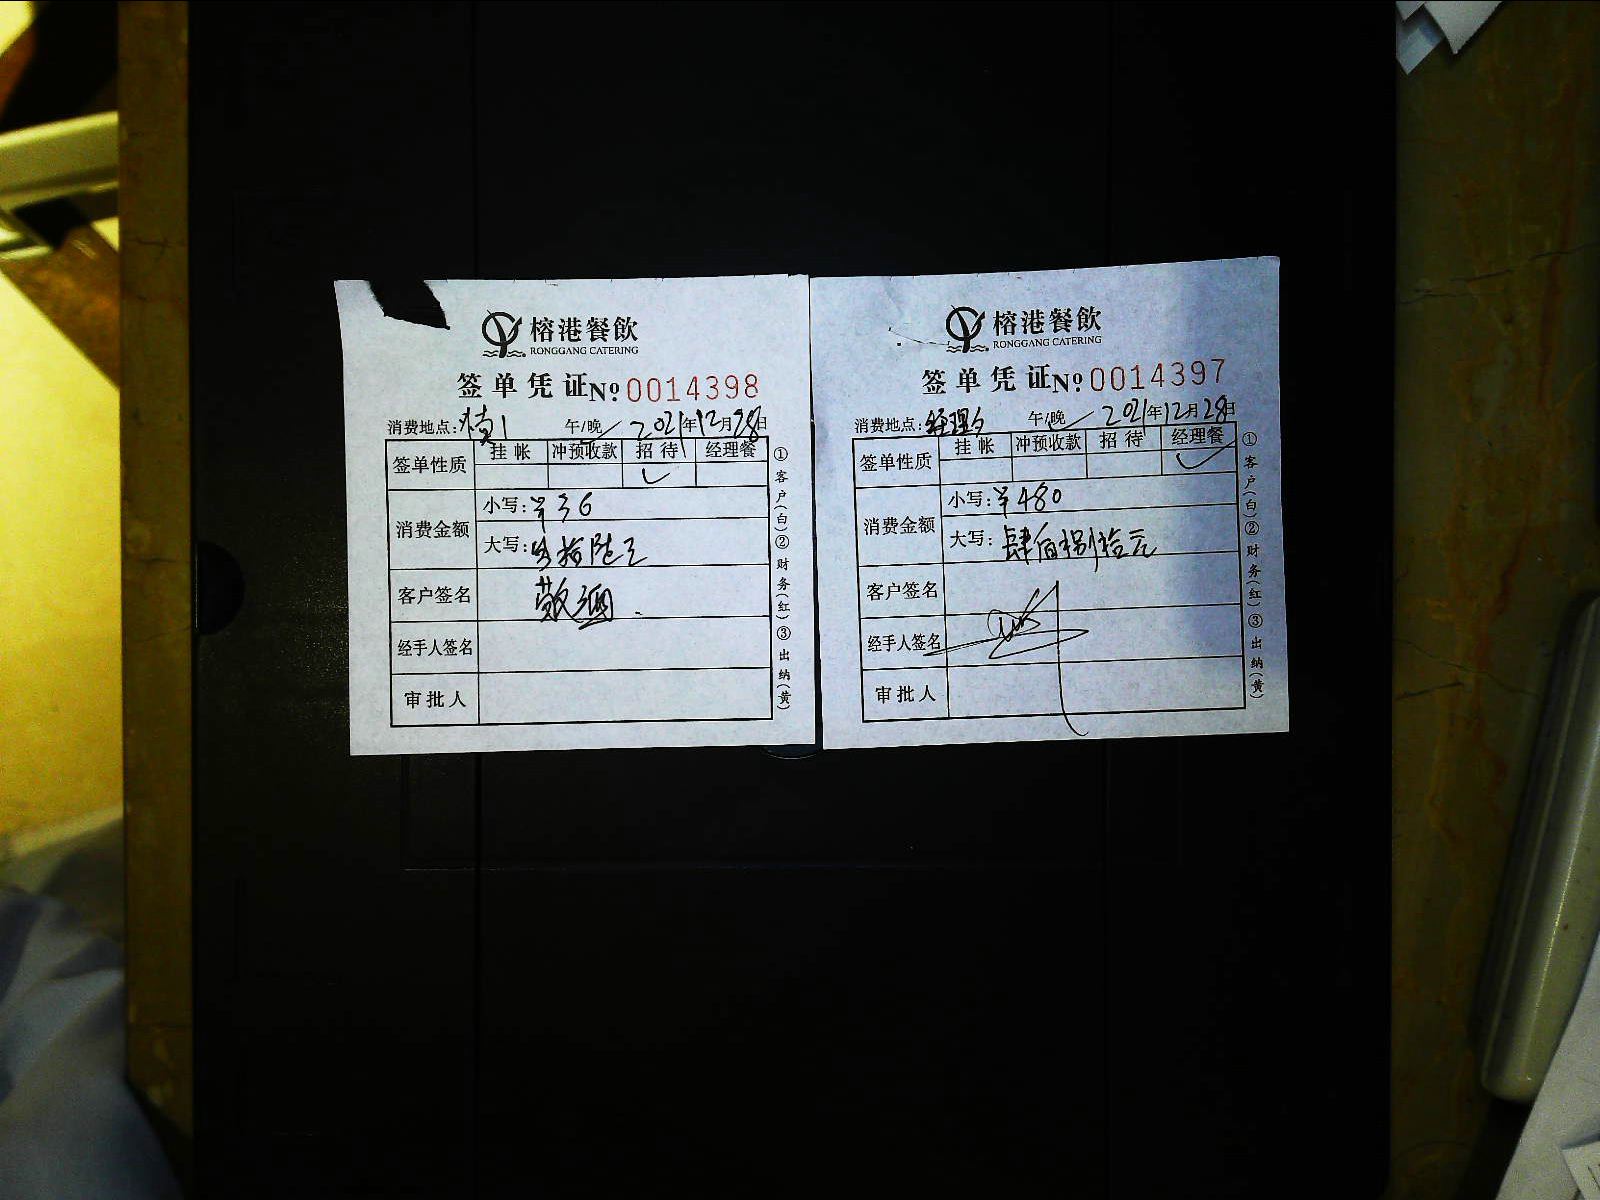 榕港餐飲
RONGGANG CATERING
签单凭证 Nº 0014398
消费地点: 午/晚 2021年12月28日
签单性质 挂帐 冲预收款 招待 经理餐
消费金额 小写:¥36
大写:叁拾陆元
客户签名
经手人签名
审批人
①客户(白)②财务(红)③出纳(黄)
榕港餐飲
RONGGANG CATERING
签单凭证 Nº 0014397
消费地点:经理 午/晚 2021年12月28日
签单性质 挂帐 冲预收款 招待 经理餐
消费金额 小写:¥480
大写:肆佰捌拾元
客户签名
经手人签名
审批人
①客户(白)②财务(红)③出纳(黄)